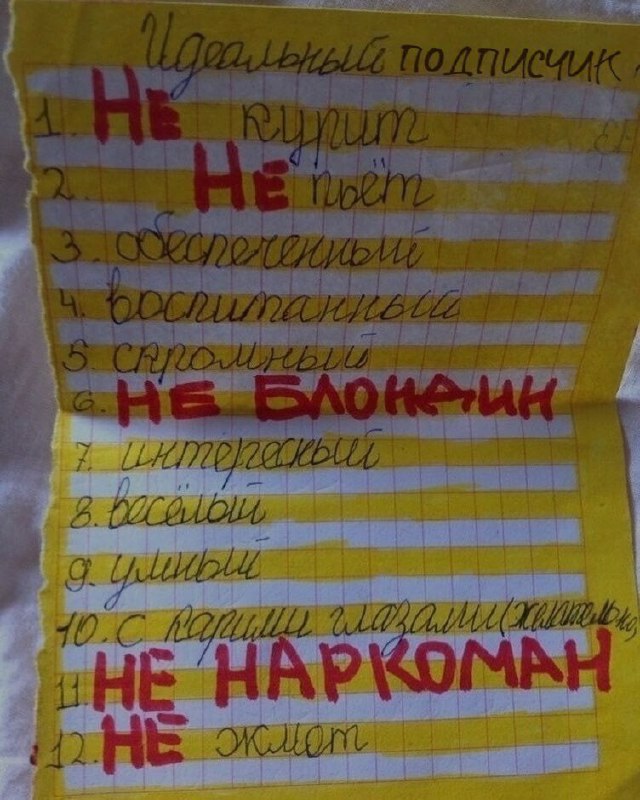 Идеальный подписчик.
1. Не курит
2. Не пьёт
3. обеспеченный
4. воспитанный
5. скромный
6. НЕ БЛОНДИН
7. интересный
8. весёлый
9. умный
10. с карими глазами (желательно)
11. НЕ НАРКОМАН
12. НЕ жмот